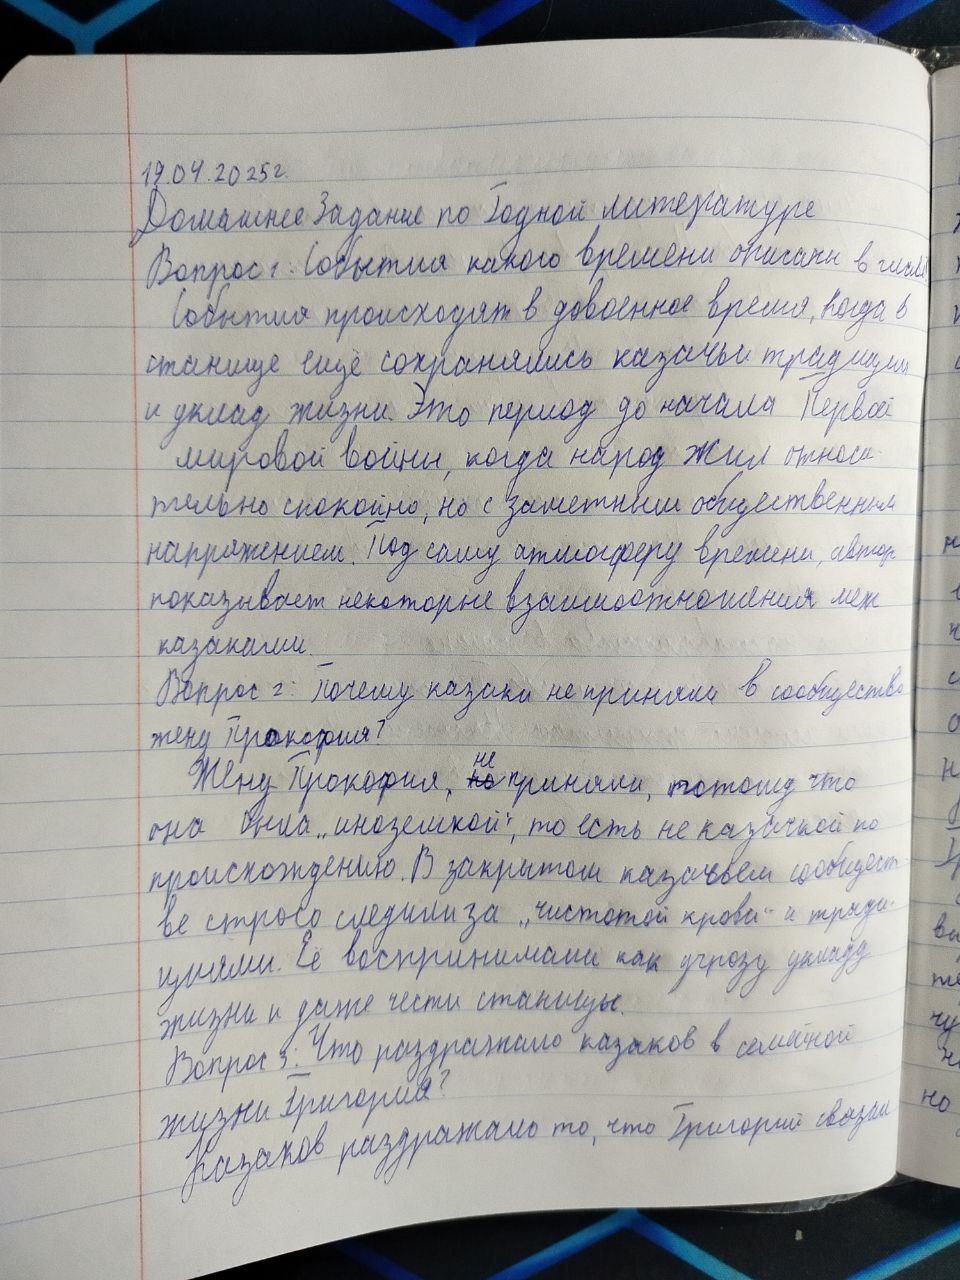 19.04.2025г.
Домашнее Задание по Родной литературе
Вопрос 1: События какого времени описаны в
События происходят в довоенное время, когда в
станице ещё сохранялись казачьи традиции
и уклад жизни. Это период до начала Первой
мировой войны, когда народ жил относи-
тельно спокойно, но с заметным общественным
напряжением. Под саму атмосферу времени, автор
показывает некоторые взаимоотношения меж
казаками.
Вопрос 2: Почему казаки не приняли в сообщество
жену Прокофия?
Жену Прокофия, не приняли, потому что
она была „иноземкой", то есть не казачкой по
происхождению. В закрытом казачьем сообщест-
ве строго следили за „чистотой крови" и тради-
циями. Её воспринимали как угрозу укладу
жизни и даже чести станицы.
Вопрос 3: Что раздражало казаков в семейной
жизни Григория?
Казаков раздражало то, что Григорий связал